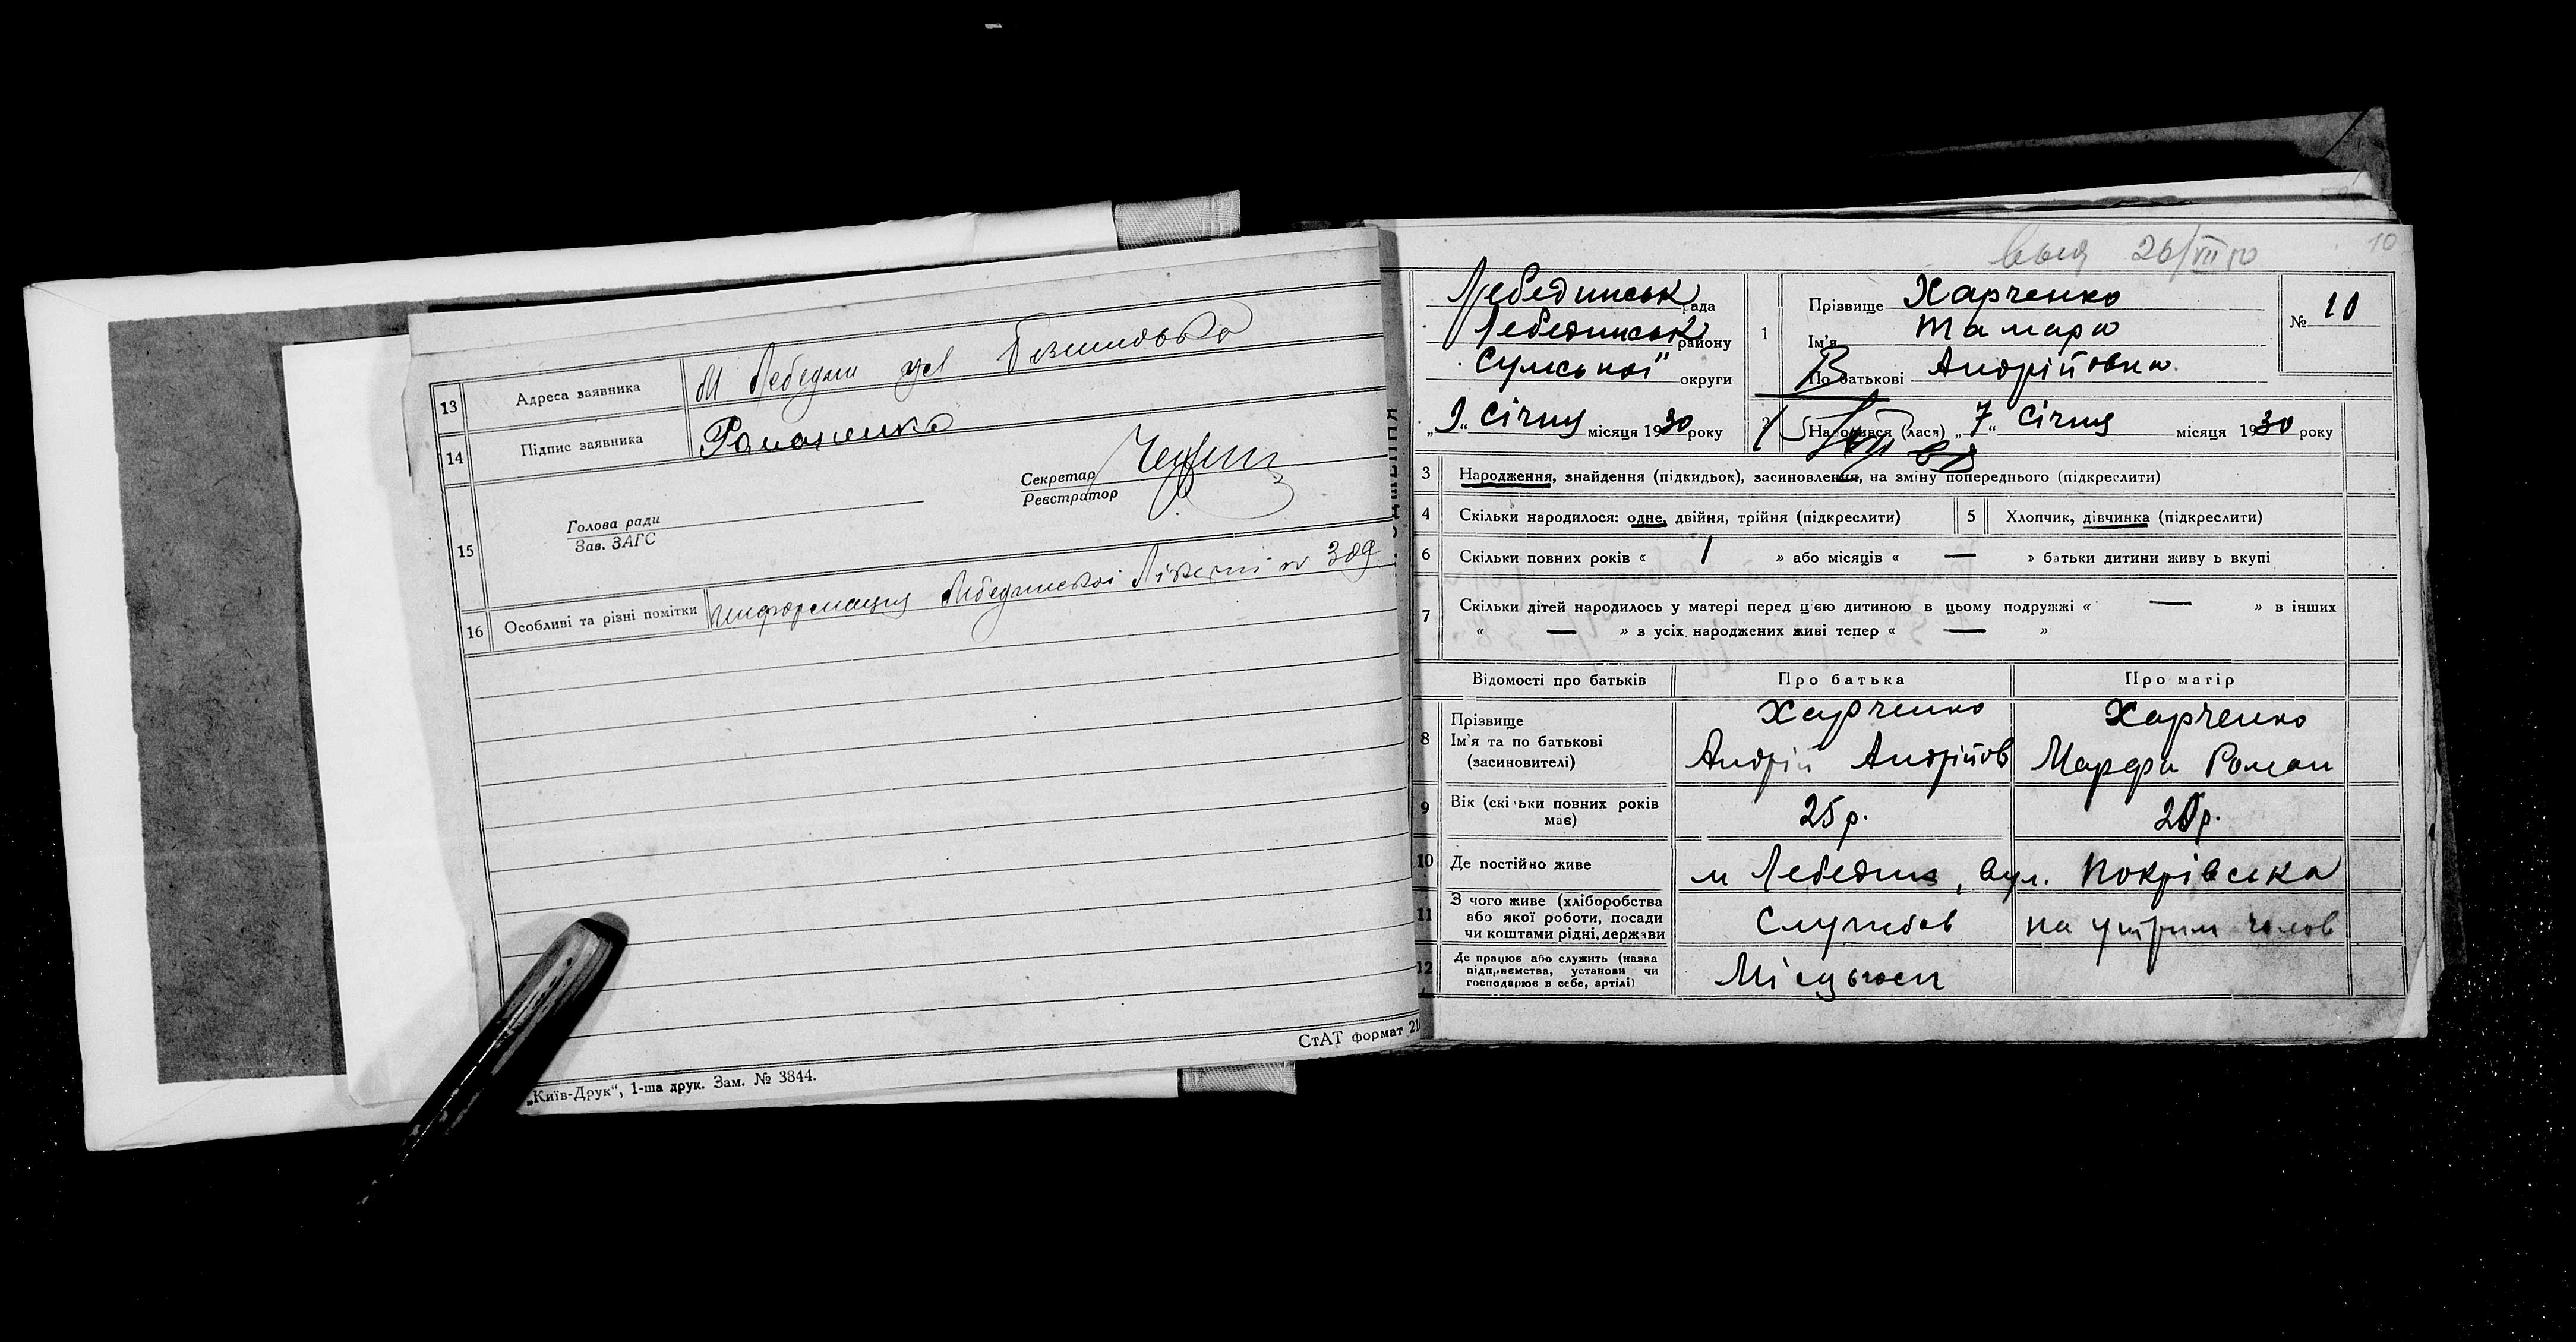 13 Адреса заявника М Лебедин вул
14 Підпис заявника Романенко
Секретар
Реєстратор
Голова ради
Зав. ЗАГС
15
16 Особливі та різні помітки информация Лебединської Лікарні № 389
СтАТ формат 21
„Київ-Друк“, 1-ша друк. Зам. № 3844.
26/VII 50
10
Лебединськ рада
Лебединськ району
Сумської округи
„9“ січня місяця 1930 року
1 Прізвище Харченко
Ім'я Тамара
По батькові Андрійовна
№ 10
2 Народився (лася) „7“ січня місяця 1930 року
3 Народження, знайдення (підкидьок), засиновлення, на зміну попереднього (підкреслити)
4 Скільки народилося: одне, двійня, трійня (підкреслити) 5 Хлопчик, дівчинка (підкреслити)
6 Скільки повних років « 1 » або місяців « — » батьки дитини живу ь вкупі
7 Скільки дітей народилось у матері перед цєю дитиною в цьому подружжі « — » в інших
« — » з усіх народжених живі тепер « — »
Відомості про батьків Про батька Про матір
8 Прізвище Харченко Харченко
Ім'я та по батькові Андрій Андрійов Марфа Роман
(засиновителі)
9 Вік (скільки повних років має) 25 р. 20 р.
10 Де постійно живе м Лебедин, вул. Покрівська
11 З чого живе (хліборобства
або якої роботи, посади Службов на утрим чолов
чи коштами рідні, держави
12 Де працює або служить (назва
підприємства, установи чи
господарює в себе, артілі)